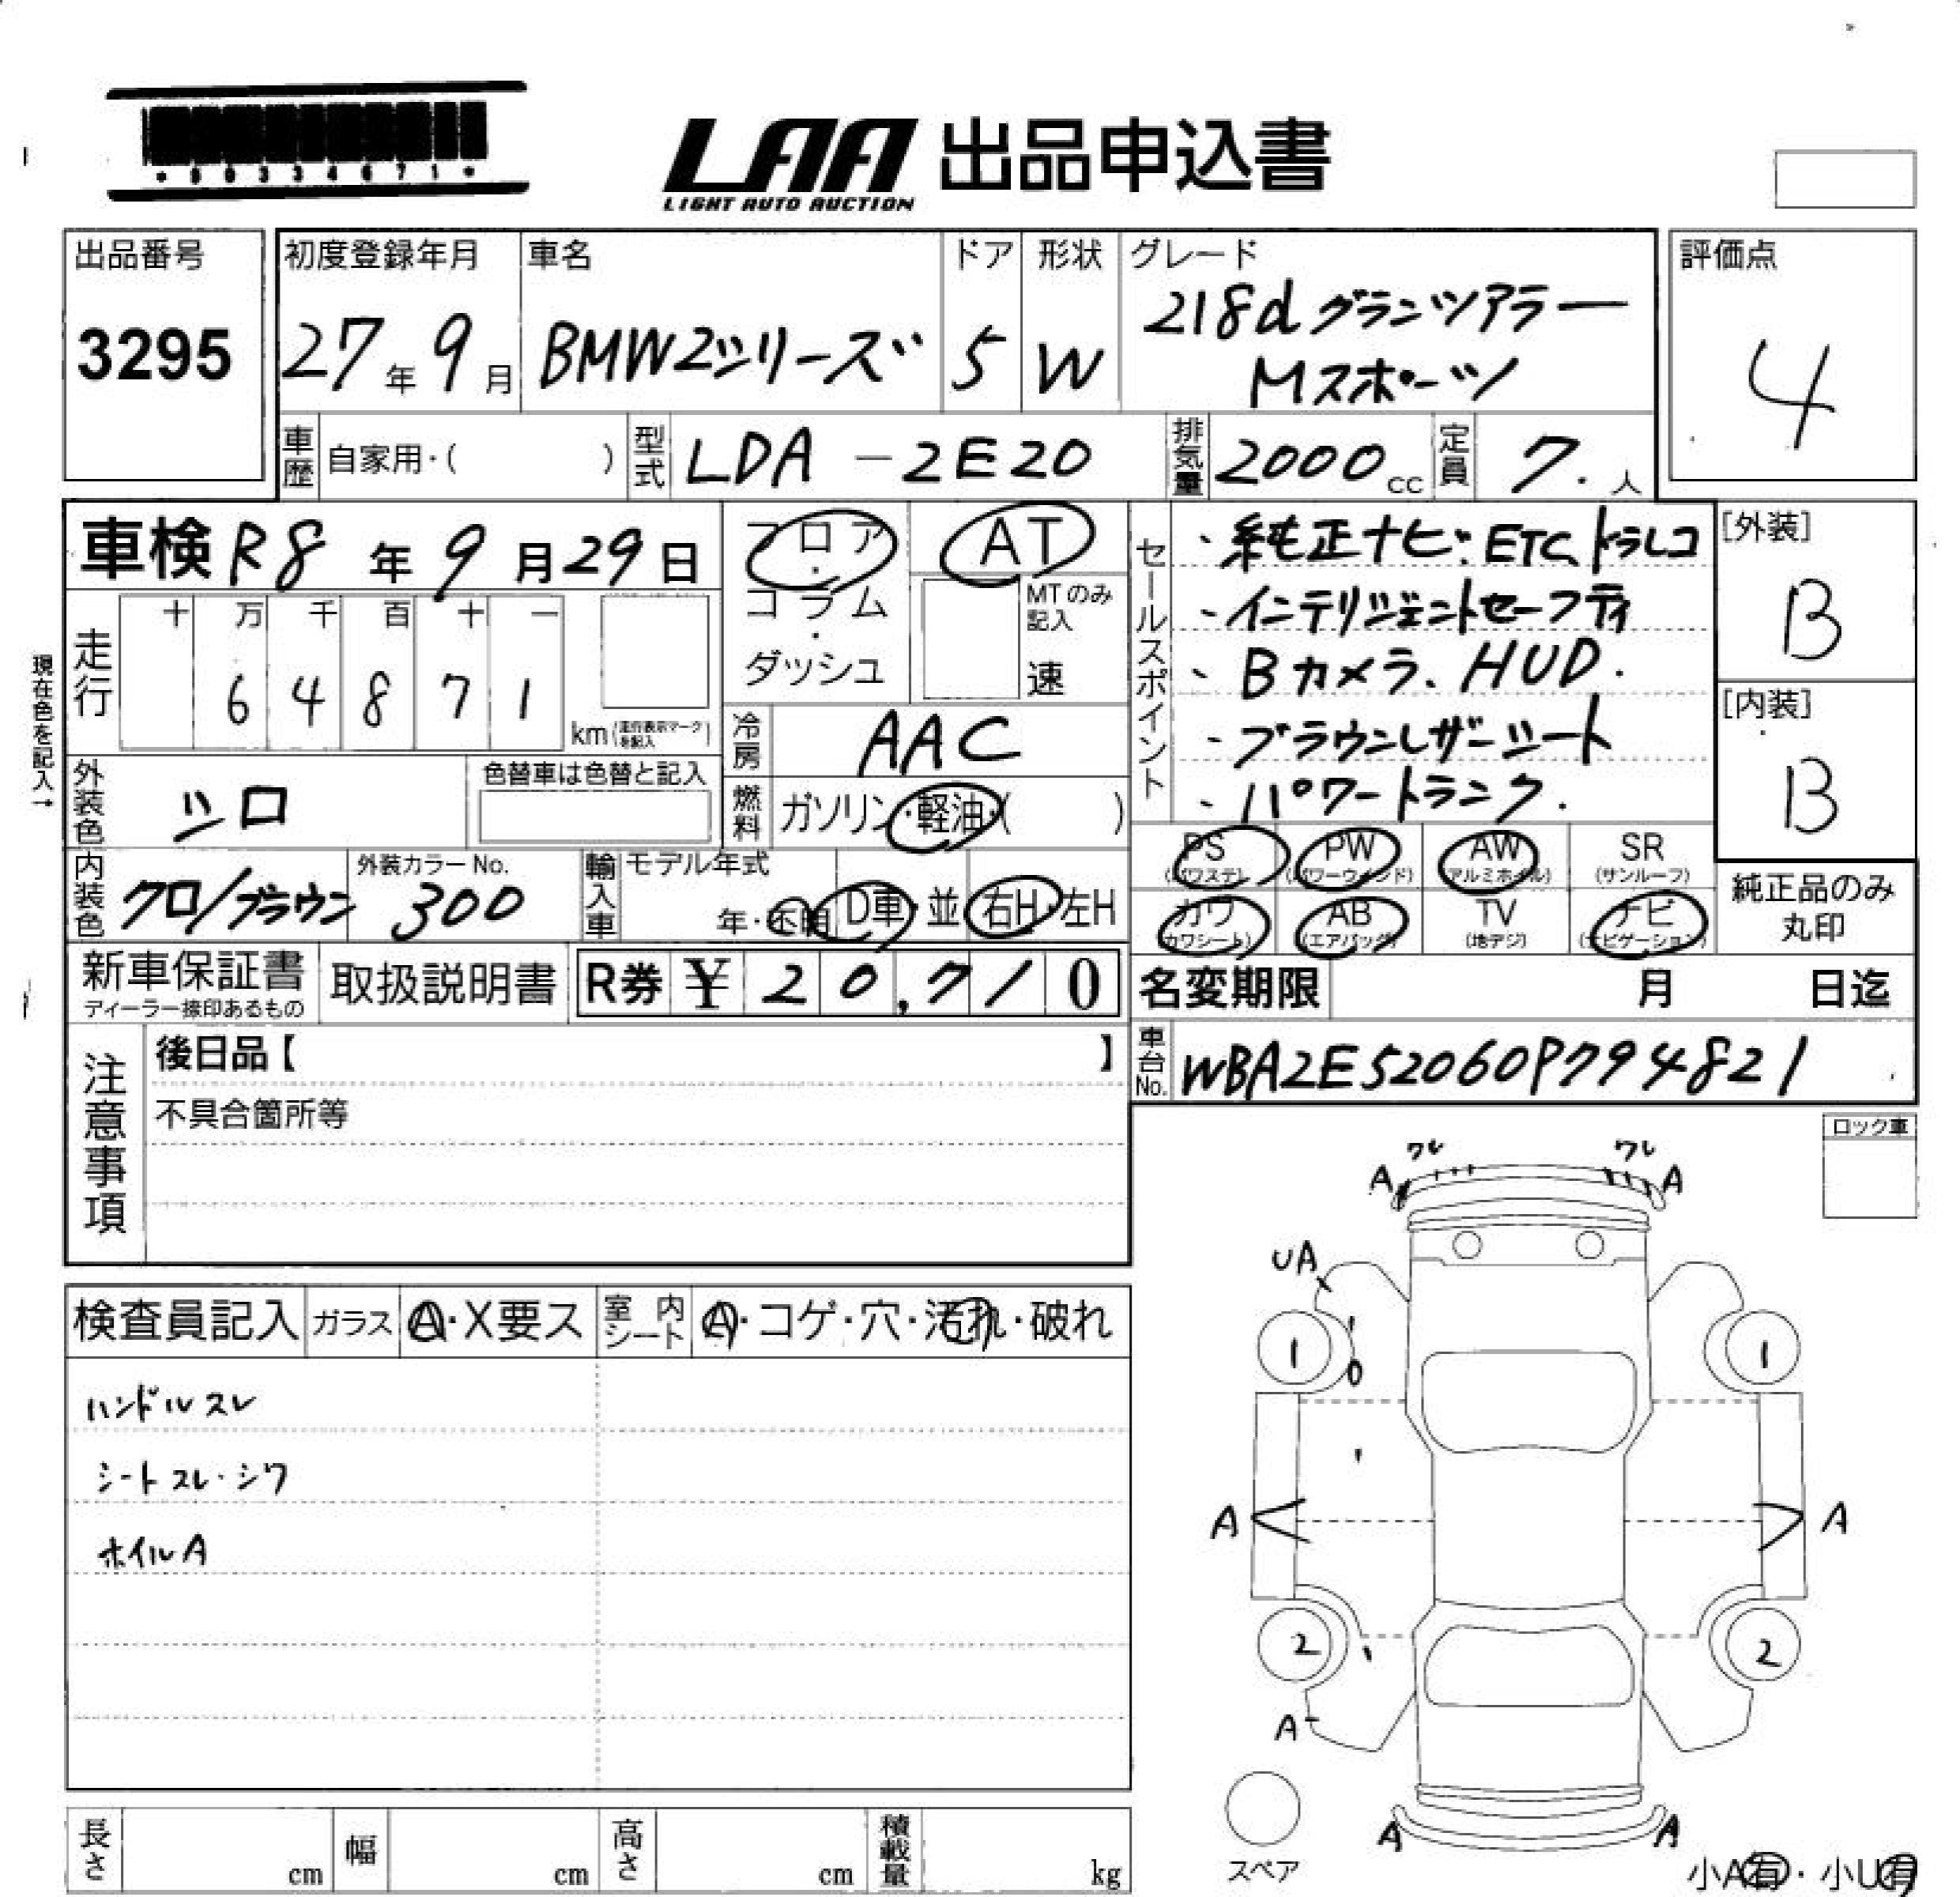 *00334671*
LAA 出品申込書
LIGHT AUTO AUCTION
出品番号
3295
初度登録年月
27年9月
車名
BMW2シリーズ
ドア
5
形状
W
グレード
218d グランツアラー
Mスポーツ
評価点
4
車歴 自家用・( )
型式 LDA-2E20
排気量 2000cc
定員 7.人
車検 R8年9月29日
フロア・コラム・ダッシュ
AT
MTのみ記入
速
現在色を記入→
走行
十 万 千 百 十 一
6 4 8 7 1
km (走行表示マークを記入)
冷房 AAC
燃料 ガソリン・軽油・( )
外装色 シロ
色替車は色替と記入
内装色 クロ/ブラウン
外装カラーNo.
300
輸入車 モデル年式
年・不明 D車・並 右H・左H
セールスポイント
・純正ナビ・ETC、ドラレコ
・インテリジェントセーフティ
・Bカメラ、HUD.
・ブラウンレザーシート
・パワートランク.
[外装]
B
[内装]
B
PS (パワステ)
PW (パワーウインド)
AW (アルミホイル)
SR (サンルーフ)
カワ (カワシート)
AB (エアバッグ)
TV (地デジ)
ナビ (ナビゲーション)
純正品のみ
丸印
新車保証書
ディーラー捺印あるもの
取扱説明書
R券 ¥20,710
名変期限 月 日迄
車台No. WBA2E52060P794821
注意事項
後日品【 】
不具合箇所等
ロック車
検査員記入 ガラス A・X要ス
室内シート A・コゲ・穴・汚れ・破れ
ハンドルスレ
シートスレ・シワ
ホイルA
ワレ ワレ
A A
UA
1 1
A A
2 2
A
A A
スペア
小A有・小U有
長さ cm
幅 cm
高さ cm
積載量 kg